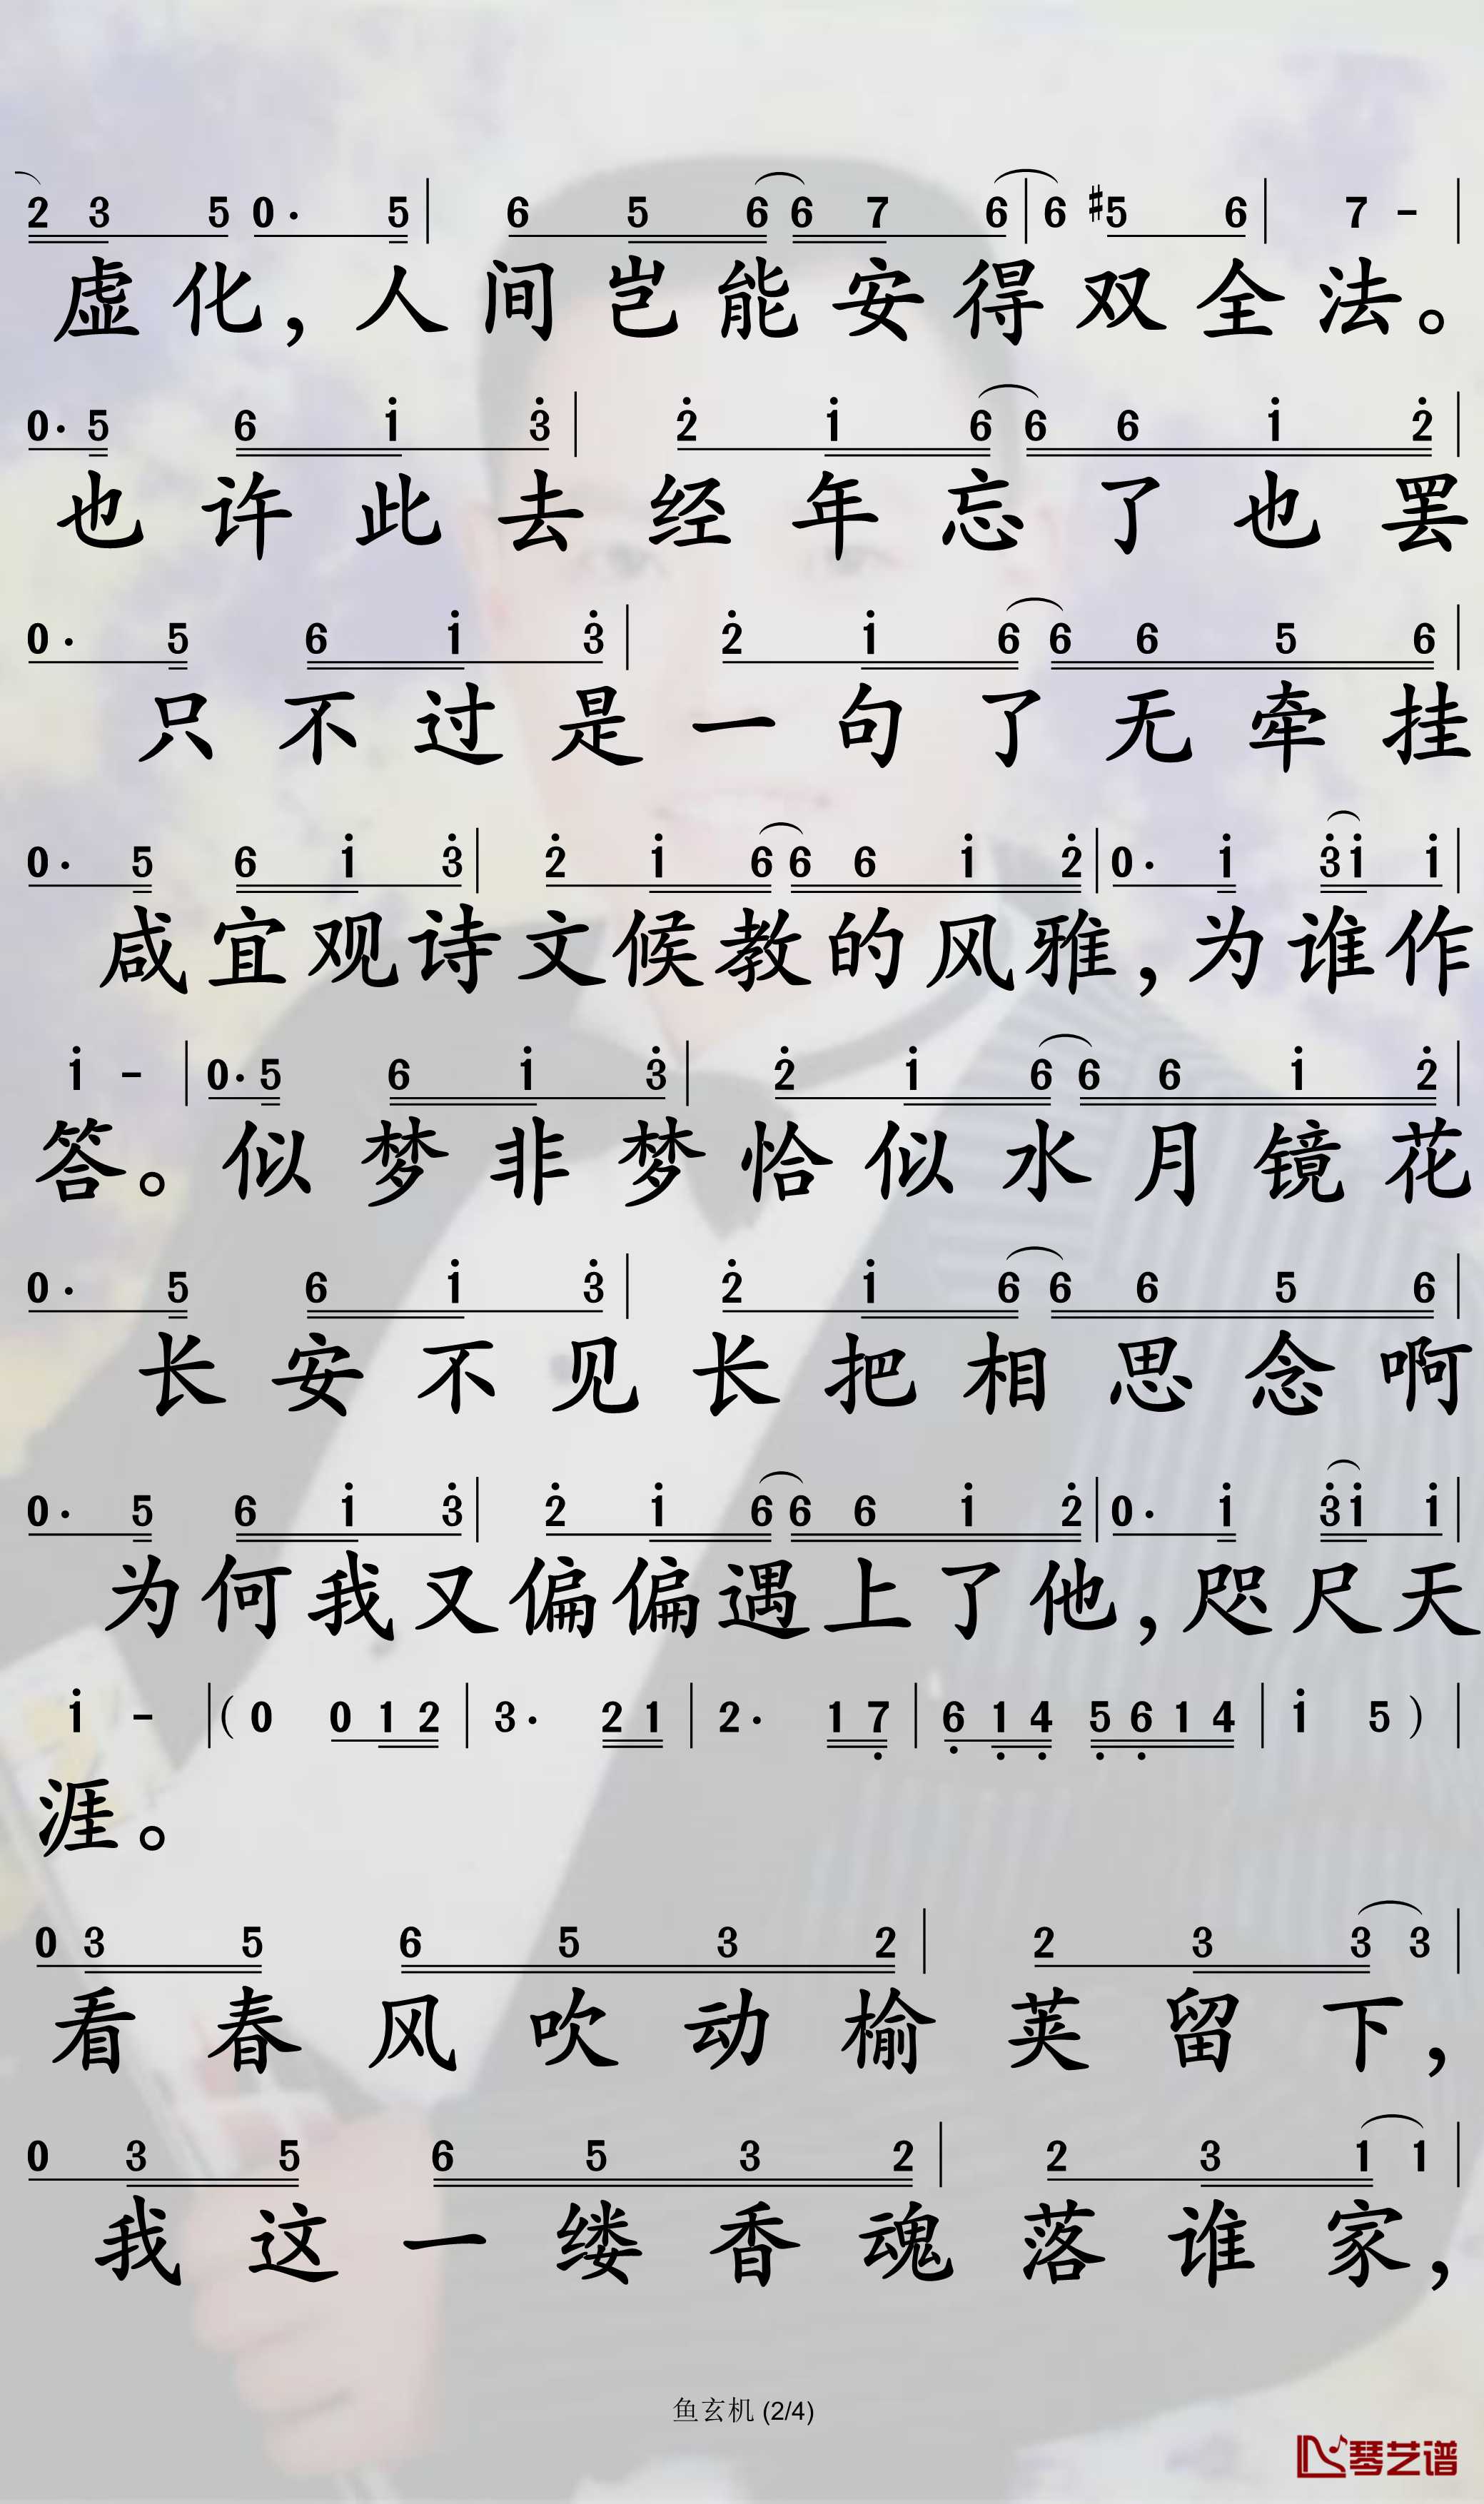 2 3 5 0· 5 | 6 5 6 6 7 6 | 6 #5 6 | 7 - |
虚化，人间岂能安得双全法。
0· 5 6 i 3̇ | 2̇ i 6 6 6 i 2̇ |
也许此去经年忘了也罢
0· 5 6 i 3̇ | 2̇ i 6 6 6 5 6 |
只不过是一句了无牵挂
0· 5 6 i 3̇ | 2̇ i 6 6 6 i 2̇ | 0· i 3̇ i i |
咸宜观诗文候教的风雅，为谁作
i - | 0· 5 6 i 3̇ | 2̇ i 6 6 6 i 2̇ |
答。似梦非梦恰似水月镜花
0· 5 6 i 3̇ | 2̇ i 6 6 6 5 6 |
长安不见长把相思念啊
0· 5 6 i 3̇ | 2̇ i 6 6 6 i 2̇ | 0· i 3̇ i i |
为何我又偏偏遇上了他，咫尺天
i - | (0 0 1 2 | 3· 2 1 | 2· 1 7̣ | 6̣ 1̣ 4̣ 5̣ 6̣ 1 4 | i 5 ) |
涯。
0 3 5 6 5 3 2 | 2 3 3 3 |
看春风吹动榆荚留下，
0 3 5 6 5 3 2 | 2 3 1 1 |
我这一缕香魂落谁家，
鱼玄机 (2/4)
琴艺谱